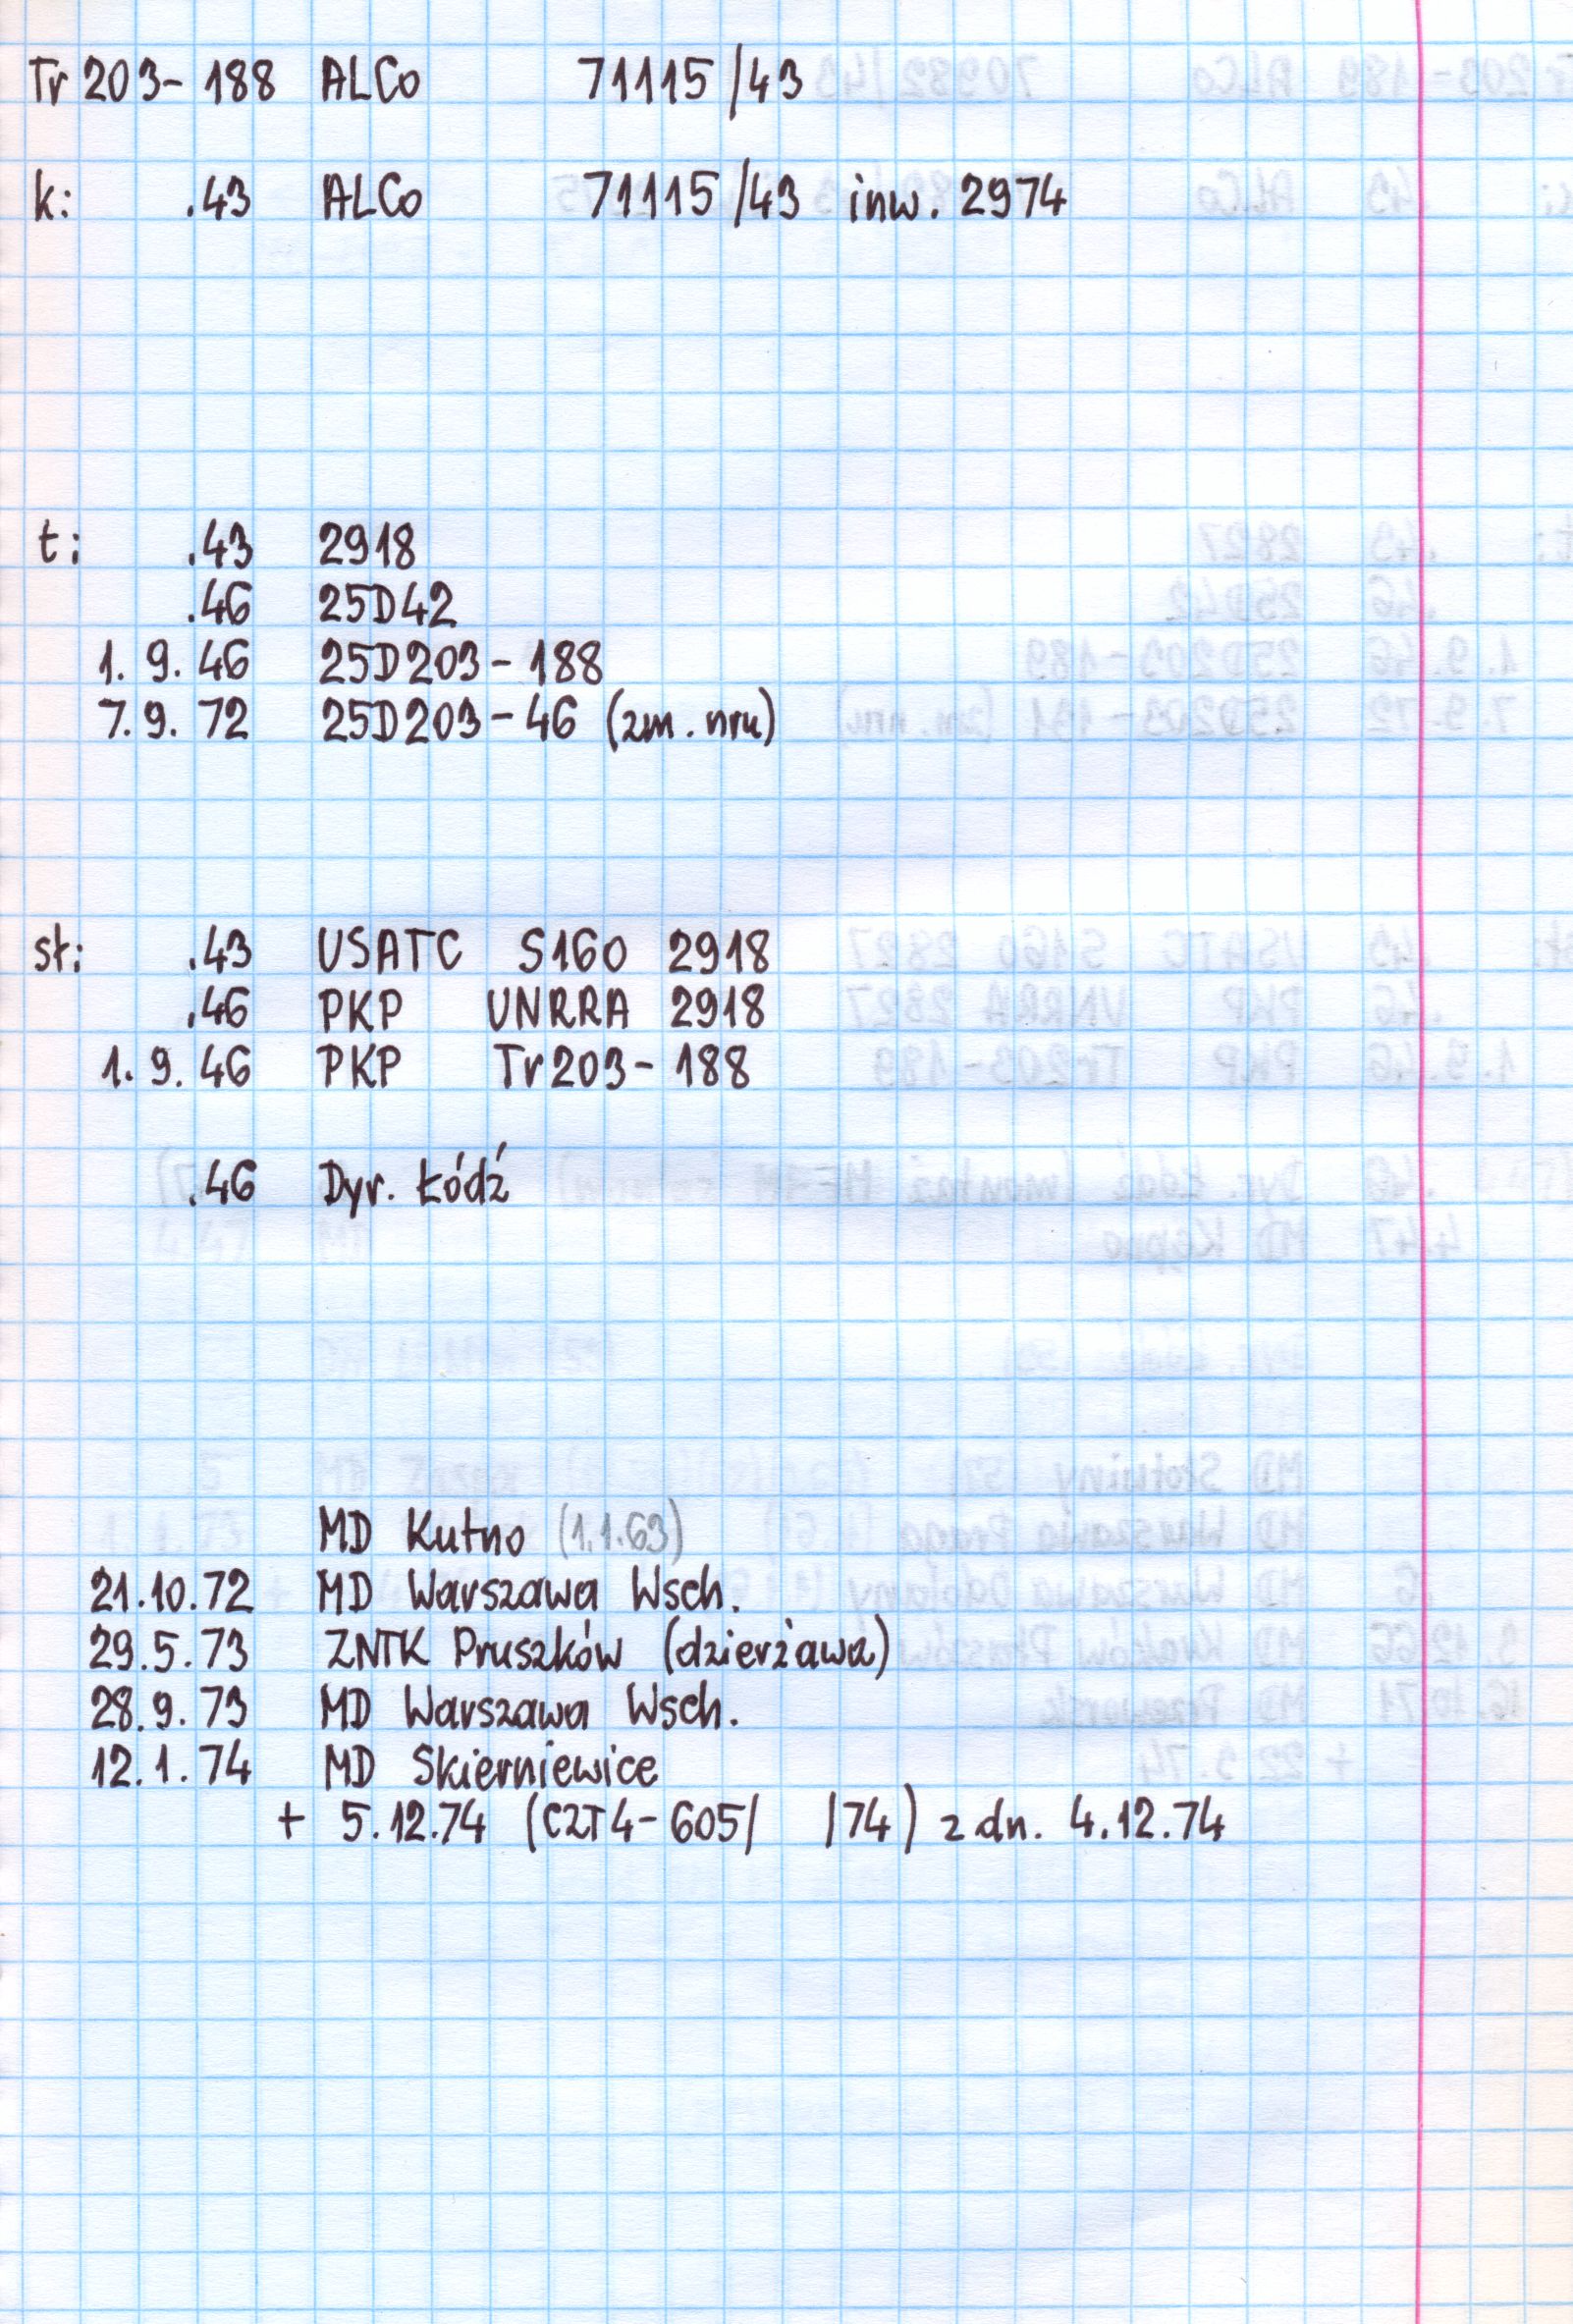 Tr 203-188 ALCo 71115/43
k: .43 ALCo 71115/43 inw. 2974
t: .43 2918
.46 25D42
1.9.46 25D203-188
7.9.72 25D203-46 (zm. nru)
sł: .43 USATC S160 2918
.46 PKP UNRRA 2918
1.9.46 PKP Tr203-188
.46 Dyr. Łódź
MD Kutno (1.1.63)
21.10.72 MD Warszawa Wsch.
29.5.73 ZNTK Pruszków (dzierżawa)
28.9.73 MD Warszawa Wsch.
12.1.74 MD Skierniewice
+ 5.12.74 (CZT4-605/ /74) z dn. 4.12.74